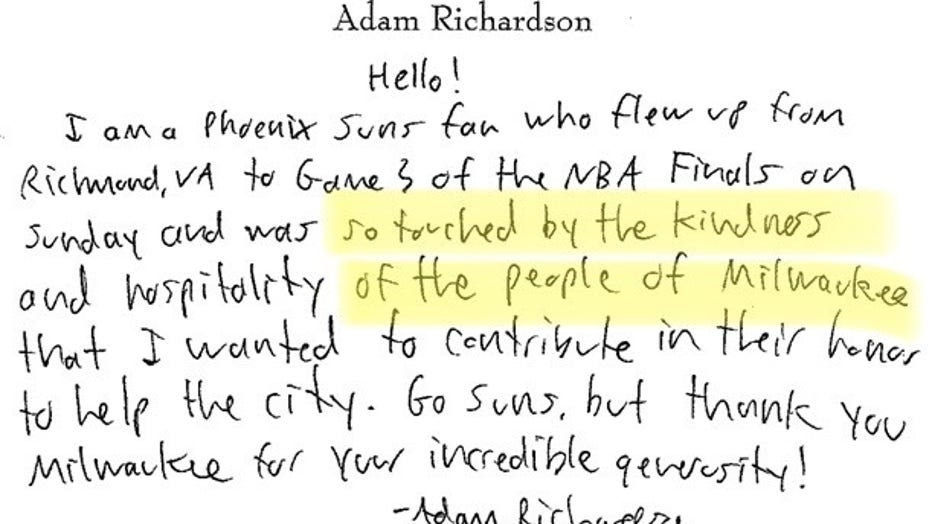 Adam Richardson
Hello!
I am a Phoenix Suns fan who flew up from
Richmond, VA to Game 3 of the NBA Finals on
Sunday and was so touched by the kindness
and hospitality of the people of Milwaukee
that I wanted to contribute in their honor
to help the city. Go Suns, but thank you
Milwaukee for your incredible generosity!
-Adam Richardson